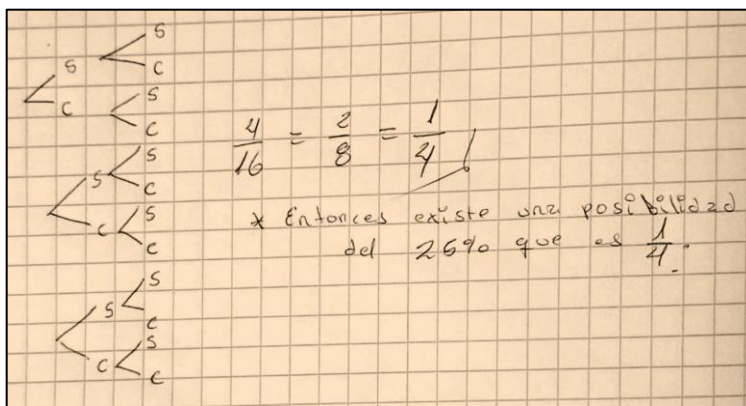 S
S
C
C
S
C
S
S
C
C
S
C
S
S
C
C
S
C
4/16 = 2/8 = 1/4
* Entonces existe una posibilidad
del 25% que es 1/4.